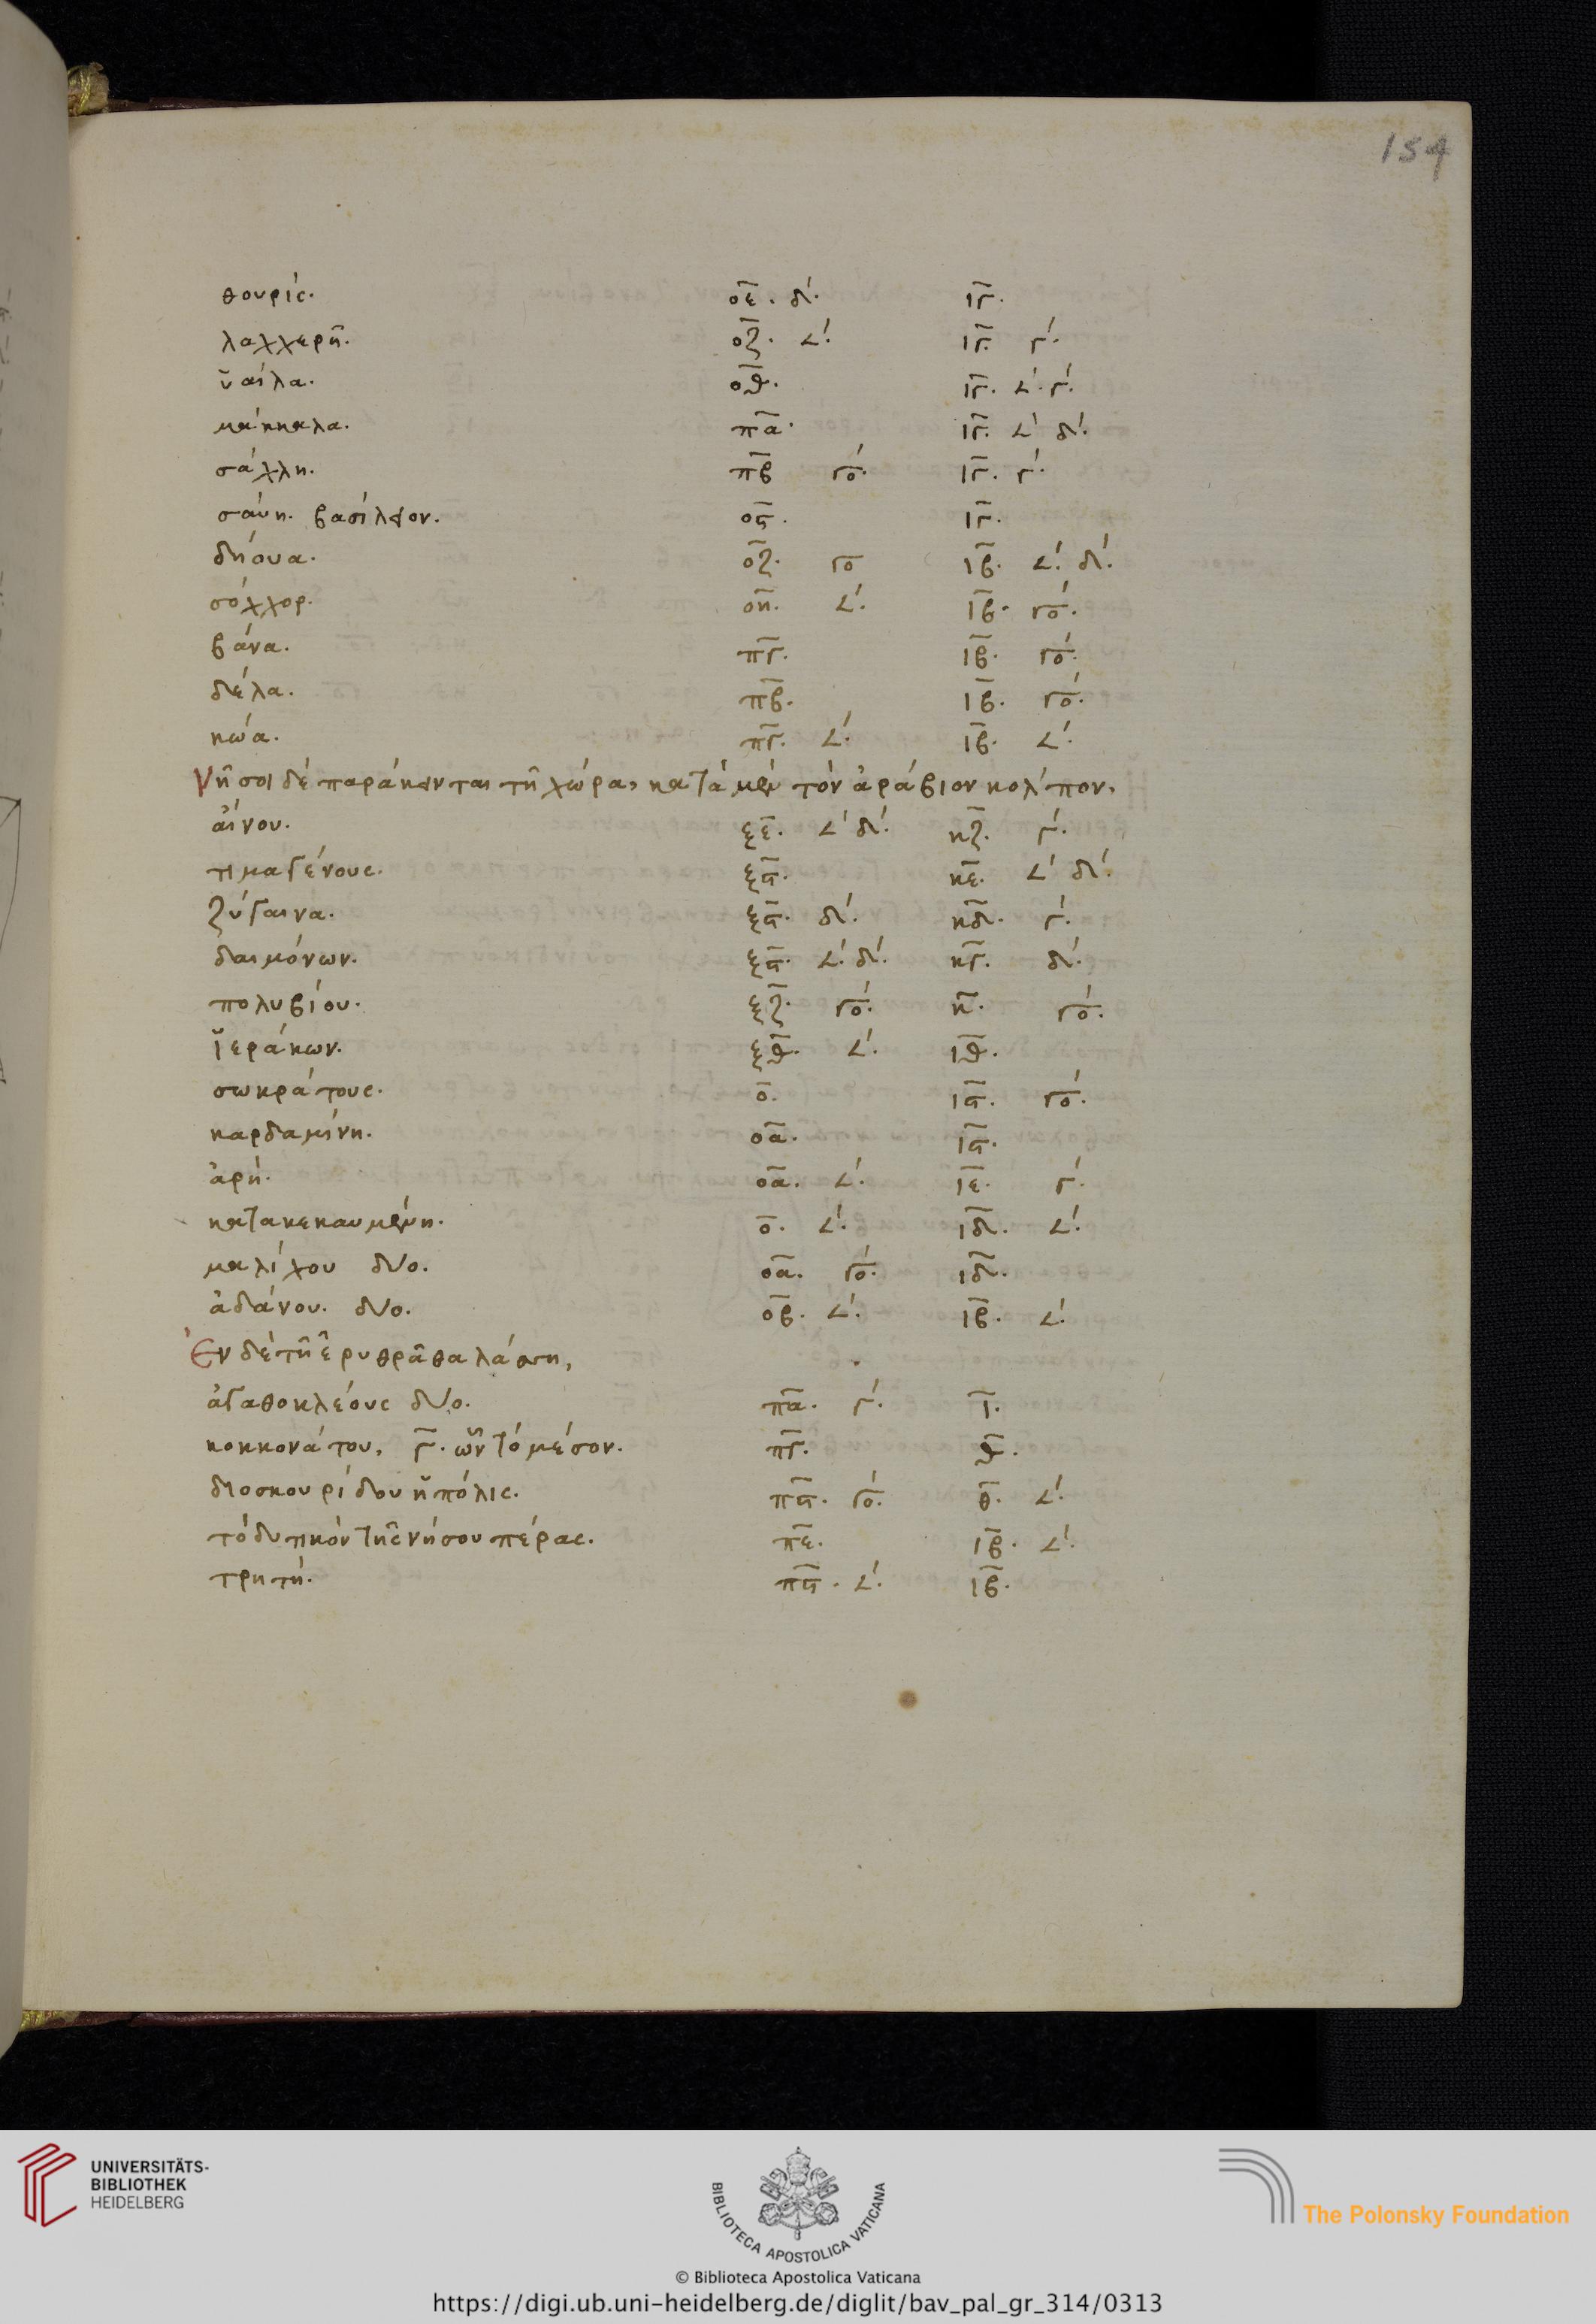 154
θουρίς. οε̅. δ'. ιγ̅.
λαχχερῆ. οζ̅. ∠'. ιγ̅. γ'.
ὕαιλα. οθ̅. ιγ̅. ∠'. γ'.
μάκκαλα. πα̅. ιγ̅. ∠' δ'.
σάχλη. πβ̅ γο'. ιγ̅. γ'.
σάυη. βασίλειον. ος̅. ιγ̅.
δήουα. οζ̅. γο ιβ̅. ∠'. δ'.
σόχχορ. οη̅. ∠'. ιβ̅. γο'.
βάνα. πγ̅. ιβ̅. γο'.
δέλα. πβ̅. ιβ̅. γο'.
κώα. πγ̅. ∠'. ιβ̅. ∠'.
Νῆσοι δὲ παράκεινται τῆ χώρα, κατὰ μὲν τὸν ἀράβιον κόλπον,
αἴνου. ξε̅. ∠' δ'. κζ̅. γ'.
τιμαγένους. ξς̅. κε̅. ∠' δ'.
ζύγαινα. ξς̅. δ'. κδ̅. γ'.
δαιμόνων. ξς̅. ∠'. δ'. κγ̅. δ'.
πολυβίου. ξζ̅. γο'. κ̅. γο'.
ἱεράκων. ξθ̅. ∠'. ιθ̅.
σωκράτους. ο̅. ις̅. γο'.
καρδαμίνη. οα̅. ις̅.
ἀρή. οα̅. ∠'. ιε̅. γ'.
κατακεκαυμένη. ο̅. ∠'. ιδ̅. ∠'.
μαλίχου δύο. οα̅. γο'. ιδ̅.
ἀδάνου. δύο. οβ̅. ∠'. ιβ̅. ∠'.
Ἐν δὲ τῆ ἐρυθρᾶ θαλάσση,
ἀγαθοκλέους δύο. πα̅. γ'. ι̅.
κοκκονάτου, γ̅. ὧν τὸ μέσον. πγ̅. θ̅.
διοσκουρίδου ἡ πόλις. πς̅. γο'. θ̅. ∠'.
τὸ δυτικὸν τῆς νήσου πέρας. πε̅. ιβ̅. ∠'.
τρητή. πς̅. ∠'. ιβ̅.
UNIVERSITÄTS-
BIBLIOTHEK
HEIDELBERG
BIBLIOTECA APOSTOLICA VATICANA
The Polonsky Foundation
© Biblioteca Apostolica Vaticana
https://digi.ub.uni-heidelberg.de/diglit/bav_pal_gr_314/0313